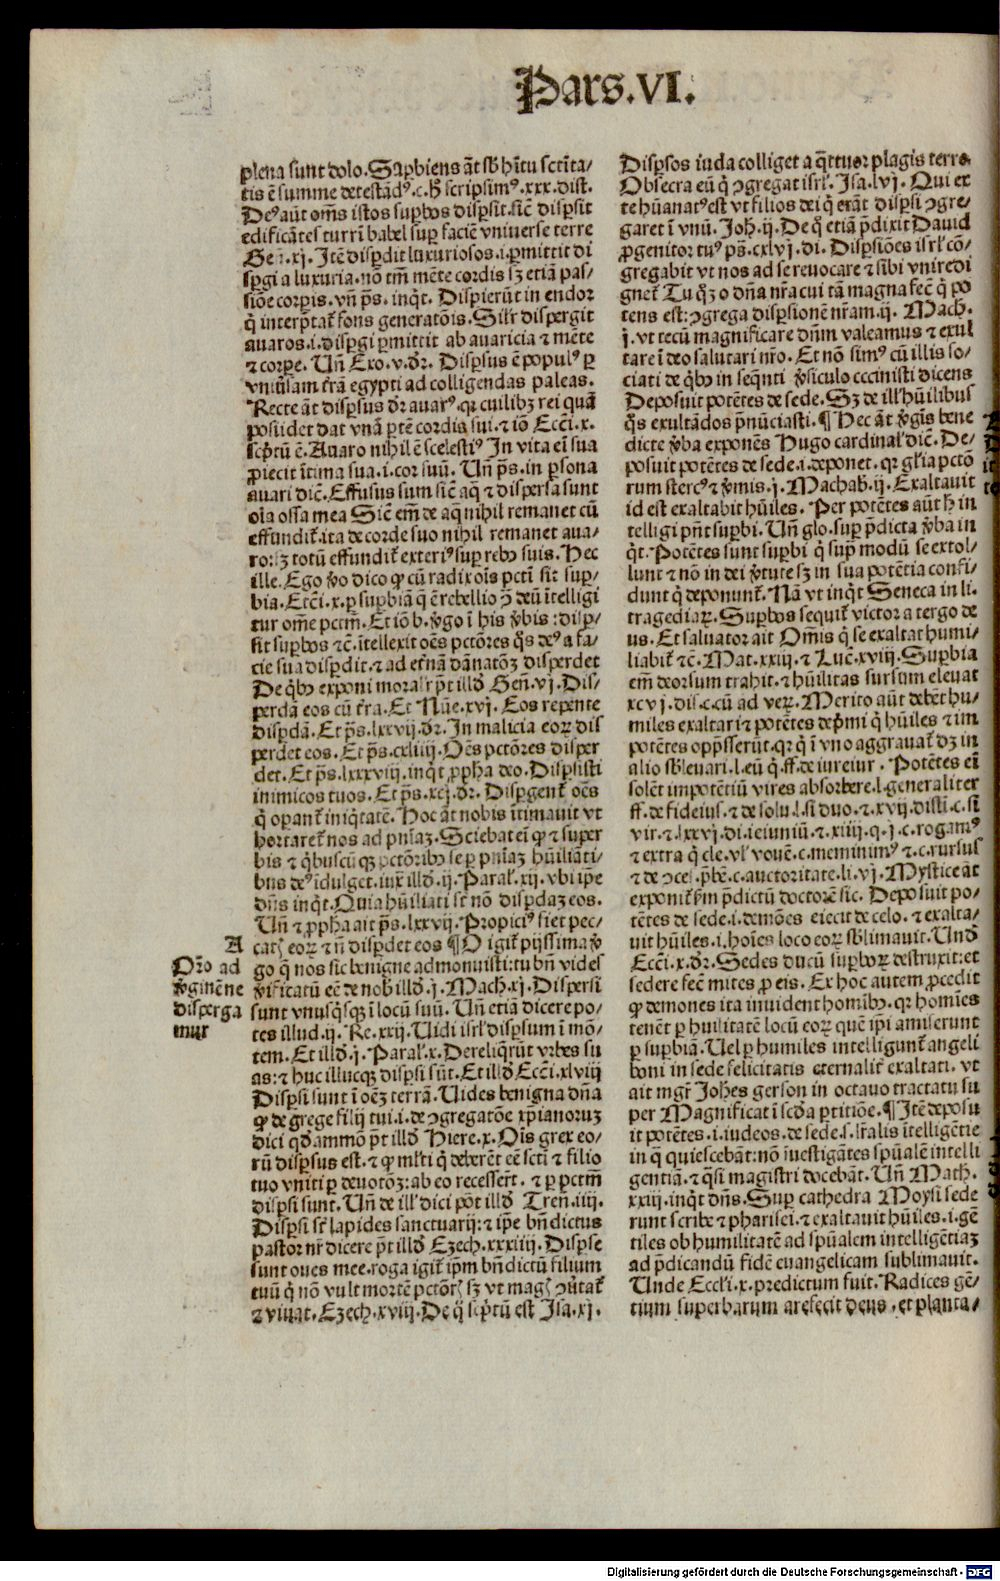 Pars.VI.
plena sunt dolo. Suꝑbiens āt sb̄ hītu sctīta/
tis ē summe detestādꝰ.c.h̄ scripsimꝰ.xxx.dist.
Deꝰ aūt oms̄ istos suꝑbos disꝑsit. sic̄ disꝑsit
edificātes turrī babel suꝑ faciē vniuerse terre
Geñ.xj. Itē disꝑdit luxuriosos.i.ꝑmittit di
sꝑgi a luxuria. nō tm̄ mēte cordis sꝫ etiā pas/
siōe corꝑis. vñ ps̄. inqͥt. Dispierūt in endor
qͥ interp̄tat̄ fons generatōis. Silr̄ dispergit
auaros.i.disꝑgi ꝑmittit ab auaricia ⁊ mēte
⁊ corꝑe. Vñ Exo.v.dr̄. Disꝑsus ē popul̄ꝰ ꝑ
vniūsam tr̄ā egypti ad colligendas paleas.
Recte āt disꝑsus dr̄ auarꝰ. qꝛ cuilibꝫ rei quā
possidet dat vnā ꝑtē cordis sui. ⁊ iō Ecci.x.
scp̄tū ē. Auaro nihil ē scelestiꝰ In vita eī sua
ꝓiecit ītima sua.i.cor suū. Vñ ps̄. in ꝑsona
auari dic̄. Effusus sum sic̄ aqͣ ⁊ dispersa sunt
oīa ossa mea Sic̄ em̄ de aqͣ nihil remanet cū
effundit̄. ita de corde suo nihil remanet aua/
ro: sꝫ totū effundit̄ exteriꝰ suꝑ rebꝰ suis. Hec
ille. Ego v̄o dico ꝙ cū radix oīs pctī sit suꝑ/
bia. Ecci.x.ꝑ suꝑbiā q̄ ē rebellio ꝯ̄ deū ītelligi
tur ome pctm̄. Et iō b. v̄go ī his v̄bis: disꝑ/
sit suꝑbos ⁊c̄. ītellexit oēs pctōres qͦs deꝰ a fa/
cie sua disꝑdit. ⁊ ad et̄nā dānatōꝫ disperdet
De qͥbꝰ exponi moralr̄ pt̄ illd̄ Geñ.vj. Dis/
perdā eos cū tr̄a. Et Nūe.xvj. Eos repente
disꝑdā. Et ps̄.lxxvij.dr̄. In malicia eoꝝ dis
perdet eos. Et ps̄.cxliiij. Oēs pctōres disper
det. Et ps̄.lxxxviij. inqͥt ꝓpha deo. Disꝑsisti
inimicos tuos. Et ps̄.xcj.dr̄. Disꝑgent̄ oēs
qͥ oꝑant̄ iniqͥtatē. Hoc āt nobis ītimauit vt
hortaret̄ nos ad pn̄iaꝫ. Sciebat eī ꝙ ⁊ super
bis ⁊ qͥbuscūqꝫ pctōribꝰ se ꝑ pn̄iaꝫ hūiliāti/
bus deꝰ īdulget. iux̄ illd̄.ij. Paral̄.xij. vbi ip̄e
dn̄s inqͥt. Quia hūiliati st̄ nō disꝑdaꝫ eos.
Vñ ⁊ ꝓpha ait ps̄.lxxvij. Propiciꝰ fiet pec/
A
catꝭ eoꝝ ⁊ nō disꝑdet eos ¶O igit̄ pijssima v̄
Orō ad v̄ginē ne disperga mur
go q̄ nos sic benigne admonuisti: tu bn̄ vides
v̄ificatū eē de nob̄ illd̄.j. Mach.xj. Dispersi
sunt vnusqͥsqꝫ ī locū suū. Vñ etiā dicere po/
tes illud.ij. Re.xxij. Uidi isrl̄ disꝑsum ī mō/
tem. Et illd̄.j. Paral̄.x. Dereliqͥrūt vrbes su
as: ⁊ huc illucqꝫ disꝑsi sūt. Et illd̄ Ecci.xlviij
Disꝑsi sunt ī oēꝫ terrā. Uides benigna dn̄a
ꝙ de grege filij tui.i.de ꝯgregatōe xp̄ianoruꝫ
dici qd̄ammō pt̄ illd̄ Hiere.x. Oīs grex eo/
rū disꝑsus est. ⁊ ꝙ ml̄ti qͥ deberēt eē sctī ⁊ filio
tuo vniti ꝑ deuotōꝫ: ab eo recesserūt. ⁊ ꝑ pctm̄
disꝑsi sunt. Vñ de ill̄ dici pōt illd̄ Treñ.iiij.
Disꝑsi st̄ lapides sanctuarij: ⁊ ip̄e bn̄dictus
pastor nr̄ dicere pt̄ illd̄ Ezech.xxxiiij. Disꝑse
sunt oues mee. roga igit̄ ip̄m bn̄dictū filium
tuū qͥ nō vult mortē pctōꝭ sꝫ vt magꝭ ꝯūtat̄
⁊ viuat. Ezech.xviij. De qͦ scp̄tū est Isa.xj.
Disꝑsos iuda colliget a qͣttuor plagis terre.
Obsecra eū qͥ ꝯgregat isrl̄. Isa.lvj. Qui ex
te hūanatꝰ est vt filios dei qͥ erāt disꝑsi ꝯgre/
garet ī vnū. Joh̄.ij. De qͦ etiā p̄dixit Dauid
ꝓgenitor tuꝰ ps̄.cxlvj. di. Disꝑsiōes isrl̄ cō/
gregabit vt nos ad se reuocare ⁊ sibi vniredi
gnet̄ Tu qͣꝫ o dn̄a nr̄a cui tā magna fec̄ qͥ po
tens est: ꝯgrega disꝑsionē nr̄am.ij. Mach.
j. vt tecū magnificare dn̄m valeamus ⁊ exul
tare ī deo salutari nr̄o. Et nō simꝰ cū illis so/
ciati de qͥbꝰ in seqn̄ti v̄siculo cecinisti dicens
Deposuit potētes de sede. Sꝫ de ill̄ hūilibus
qͦs exultādos p̄nūciasti. ¶ Hec āt v̄gīs bene
dicte v̄ba exponēs Hugo cardinal̄ dic̄. De/
posuit potētes de sede.i.deponet. qꝛ gl̄ia pctō
rum stercꝰ ⁊ v̄mis.j. Machab̄.ij. Exaltauit
id est exaltabit hūiles. Per potētes aūt h̄ in
telligi pn̄t suꝑbi. Vñ glo. suꝑ p̄dicta v̄ba in
qͥt. Potētes sunt suꝑbi qͥ supͣ modū se extol/
lunt ⁊ nō in dei v̄tute sꝫ in sua potētia confi/
dunt qͥ deponunt̄. Nā vt inqͥt Seneca in li.
tragediaꝝ. Suꝑbos sequit̄ victor a tergo de
us. Et saluator ait Omīs qͥ se exaltat humi/
liabit̄ ⁊c̄. Mat.xxiij. ⁊ Luc̄.xviij. Suꝑbia
em̄ deorsum trahit. ⁊ hūilitas sursum eleuat
xcvj.dis.c.cū ad veꝝ. Merito aūt debēt hu/
miles exaltari ⁊ potētes dep̄mi qͥ hūiles ⁊ im
potētes opp̄sserūt. qꝛ qͥ ī vno aggrauat̄ dꝫ in
alio sb̄leuari.l.eū qͥ.ff.de iureiur. Potētes eī
solēt impotētiū vires absorbere.l.generaliter
ff.de fideius.⁊ de solu.l.si duo.⁊ xvij.distī.c.si
vir.⁊ lxxvj.di.ieiuniū.⁊ xiiij.q.j.c.rogamꝰ
⁊ extra qͥ cle. vl̄ vouē.c.meminimꝰ ⁊.c.rursus
⁊ de ꝯcel̄.p̄bē.c.auctoritate.li.vj. Mystice āt
exponit̄ ẜm p̄dictū doctorē sic. Deposuit po/
tētes de sede.i.demōes eiecit de celo. ⁊ exalta/
uit hūiles.i.hoīes loco eoꝝ sb̄limauit. Und̄
Ecci.x.dr̄. Sedes ducū suꝑboꝝ destruxit: et
sedere fec̄ mites ꝓ eis. Ex hoc autem ꝓcedit
ꝙ demones ita inuident homībꝰ. qꝛ homīes
tenēt ꝑ huilitatē locū eoꝝ quē ip̄i amiserunt
ꝑ suꝑbiā. Uel ꝑ humiles intelligunt̄ angeli
boni in sede felicitatis eternalit̄ exaltati. vt
ait mgr̄ Joh̄es gerson in octauo tractatu su
per Magnificat ī scd̄a ꝑtitiōe. ¶ Itē deposu
it potētes.i.iudeos.de sede.s.lr̄alis ītelligētie
in qͣ quiescebāt: nō īuestigātes spūalē intelli
gentiā. ⁊ qͣsi magistri docebāt. Vñ Math.
xxiij. inqͥt dn̄s. Suꝑ cathedrā Moysi sede
runt scribe ⁊ pharisei. ⁊ exaltauit hūiles.i.gē
tiles ob humilitatē ad spūalem intelligētiaꝫ
ad p̄dicandū fidē euangelicam sublimauit.
Unde Eccli.x.predictum fuit. Radices gē/
tium superbarum arefecit deus, et planta/
Digitalisierung gefördert durch die Deutsche Forschungsgemeinschaft - DFG